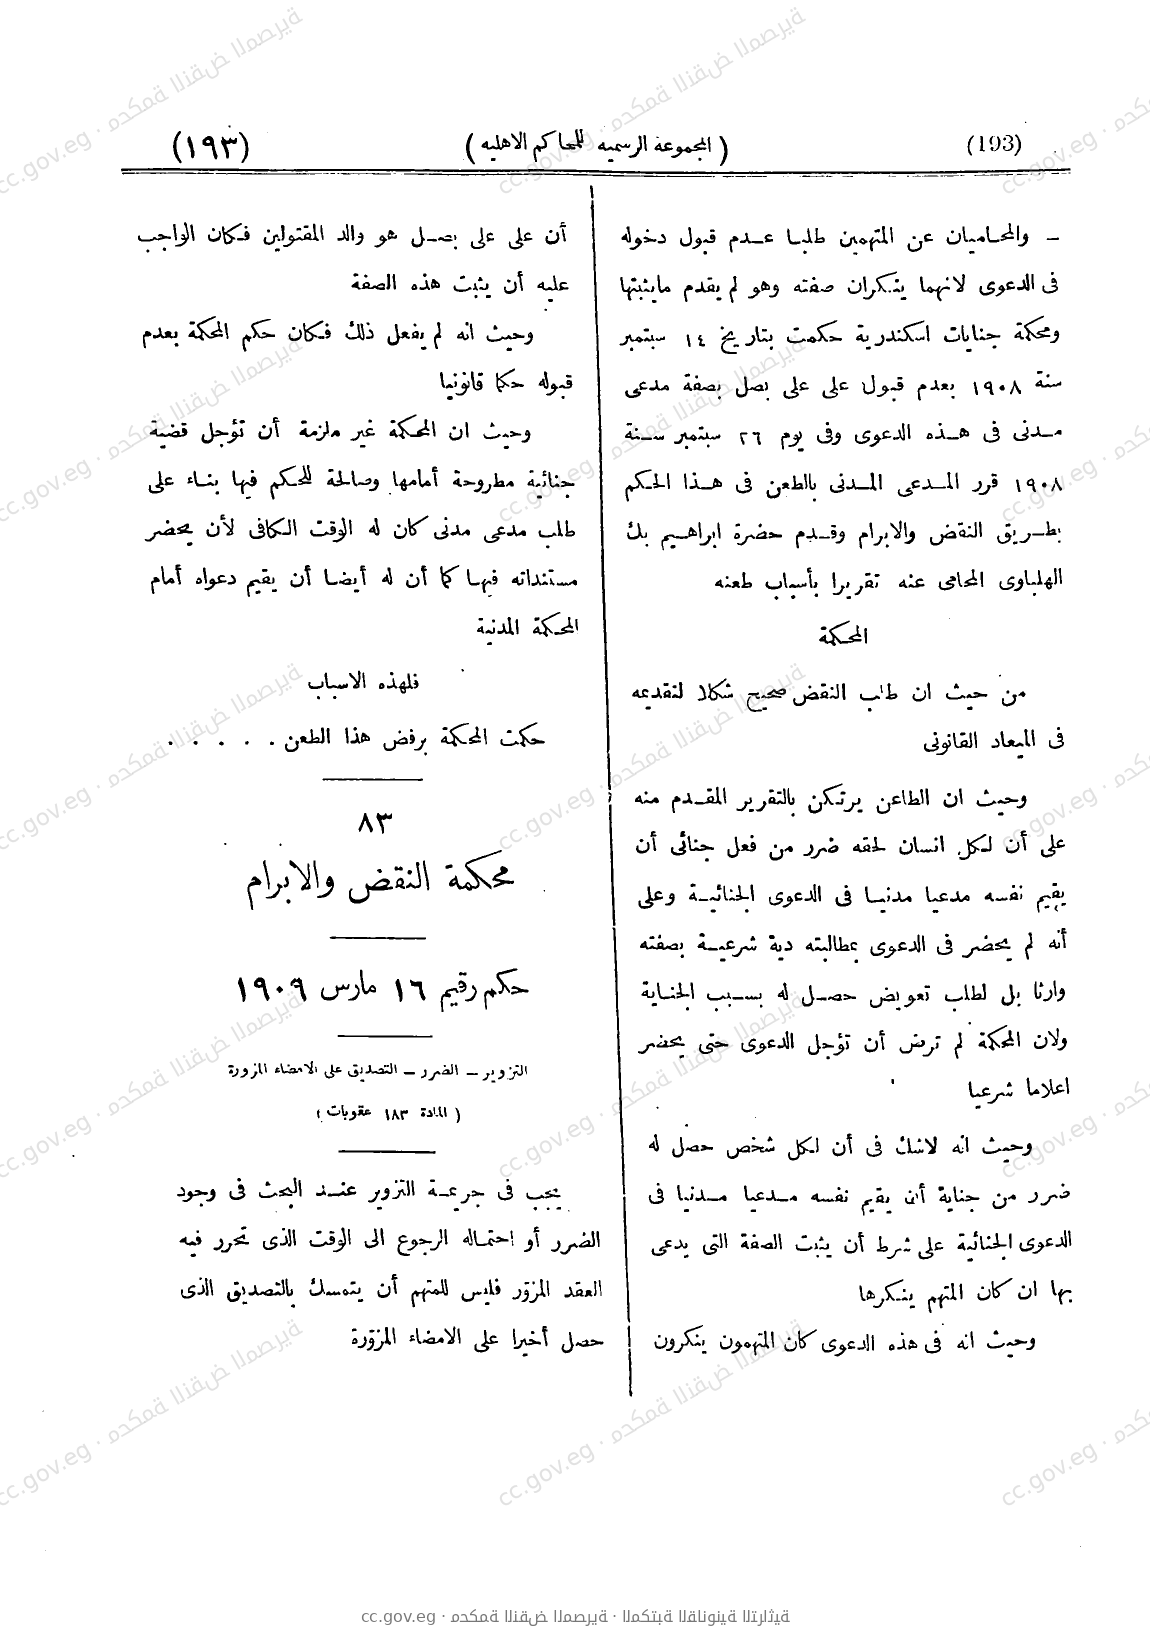 (193)
( المجموعة الرسمية للمحاكم الاهلية )
(١٩٣)
– والمحاميان عن المتهمين طلبا عدم قبول دخوله
فى الدعوى لانهما ينكران صفته وهو لم يقدم مايثبتها
ومحكمة جنايات اسكندرية حكمت بتاريخ ١٤ سبتمبر
سنة ١٩٠٨ بعدم قبول على على بصل بصفة مدعى
مدنى فى هذه الدعوى وفى يوم ٢٦ سبتمبر سنة
١٩٠٨ قرر المدعى المدنى بالطعن فى هذا الحكم
بطريق النقض والابرام وقدم حضرة ابراهيم بك
الهلباوى المحامى عنه تقريرا بأسباب طعنه
المحكمة
من حيث ان طلب النقض صحيح شكلا لتقديمه
فى الميعاد القانونى
وحيث ان الطاعن يرتكن بالتقرير المقدم منه
على أن لكل انسان لحقه ضرر من فعل جنائى أن
يقيم نفسه مدعيا مدنيا فى الدعوى الجنائية وعلى
أنه لم يحضر فى الدعوى بمطالبته دية شرعية بصفته
وارثا بل لطلب تعويض حصل له بسبب الجناية
ولان المحكمة لم ترض أن تؤجل الدعوى حتى يحضر
اعلاما شرعيا
وحيث انه لاشك فى أن لكل شخص حصل له
ضرر من جناية أن يقيم نفسه مدعيا مدنيا فى
الدعوى الجنائية على شرط أن يثبت الصفة التى يدعى
بها ان كان المتهم ينكرها
وحيث انه فى هذه الدعوى كان المتهمون ينكرون
أن على على بصل هو والد المقتولين فكان الواجب
عليه أن يثبت هذه الصفة
وحيث انه لم يفعل ذلك فكان حكم المحكمة بعدم
قبوله حكما قانونيا
وحيث ان المحكمة غير ملزمة أن تؤجل قضية
جنائية مطروحة أمامها وصالحة للحكم فيها بناء على
طلب مدعى مدنى كان له الوقت الكافى لأن يحضر
مستنداته فيها كما أن له أيضا أن يقيم دعواه أمام
المحكمة المدنية
فلهذه الاسباب
حكمت المحكمة برفض هذا الطعن . . . . .
٨٣
محكمة النقض والابرام
حكم رقيم ١٦ مارس ١٩٠٩
التزوير – الضرر – التصديق على الامضاء المزورة
( المادة ١٨٣ عقوبات )
يجب فى جريمة التزوير عند البحث فى وجود
الضرر أو احتماله الرجوع الى الوقت الذى تحرر فيه
العقد المزور فليس للمتهم أن يتمسك بالتصديق الذى
حصل أخيرا على الامضاء المزورة
cc.gov.eg · محكمة النقض المصرية · المكتبة القانونية التراثية